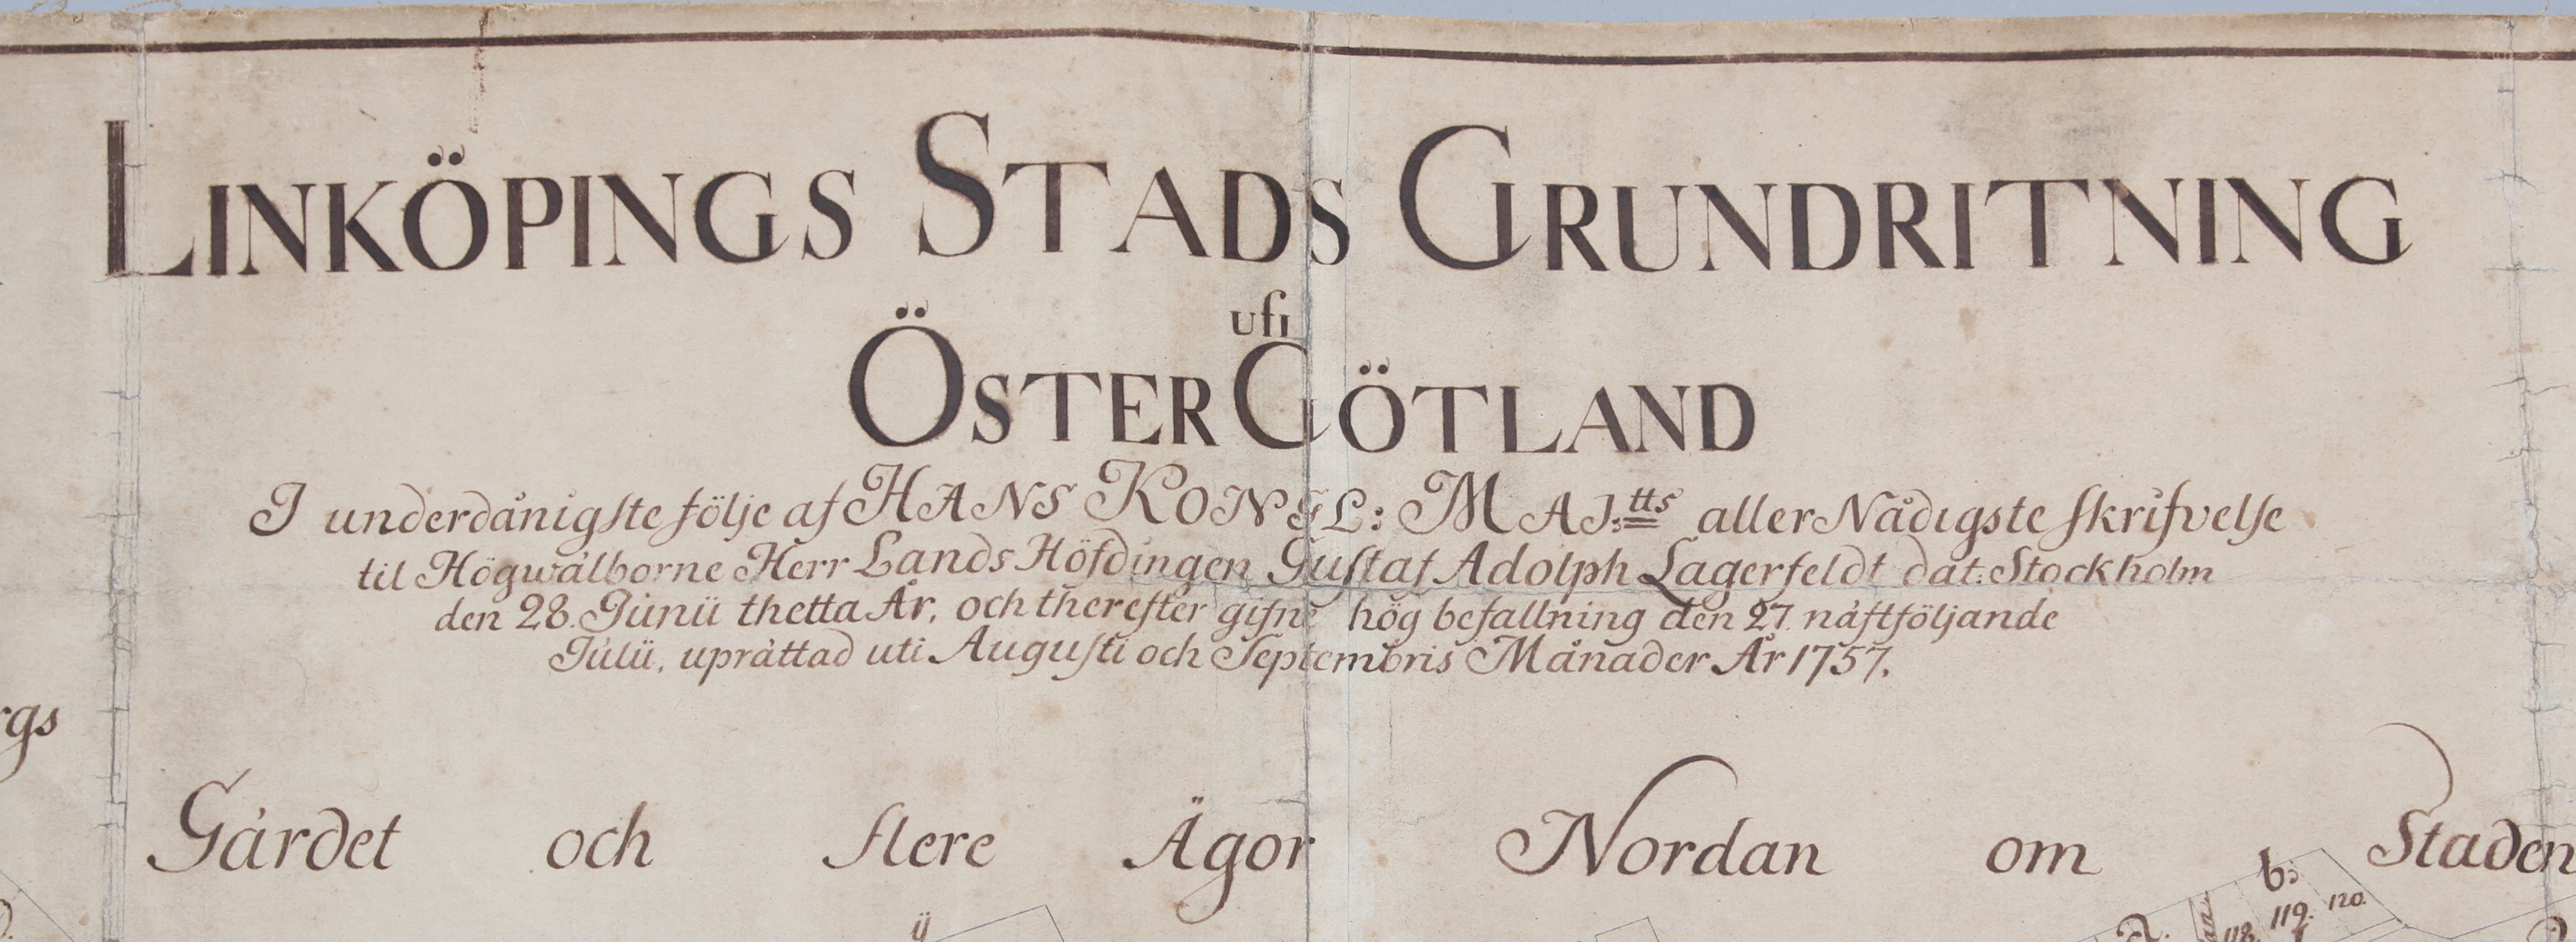 LINKÖPINGS STADS GRUNDRITNING
uti
ÖSTERGÖTLAND
I underdånigste följe af HANS KONGL: MAJ:tts aller Nådigste skrifvelse
til Högwälborne Herr Lands Höfdingen Gustaf Adolph Lagerfeldt dat: Stockholm
den 28. Junii thetta År, och therefter gifne hög befallning den 27. nästföljande
Julii, uprättad uti Augusti och Septembris Månader År 1757.
rgs
Gärdet och flere Ägor Nordan om Staden
ij
b:
a.
118. 119. 120.